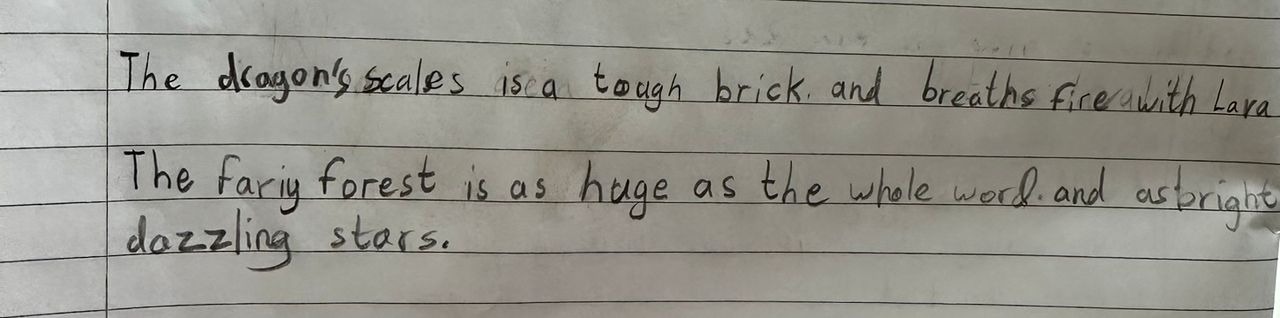 The dragon's scales is a tough brick. and breaths fire with Lava
The fariy forest is as huge as the whole word. and as bright
dazzling stars.